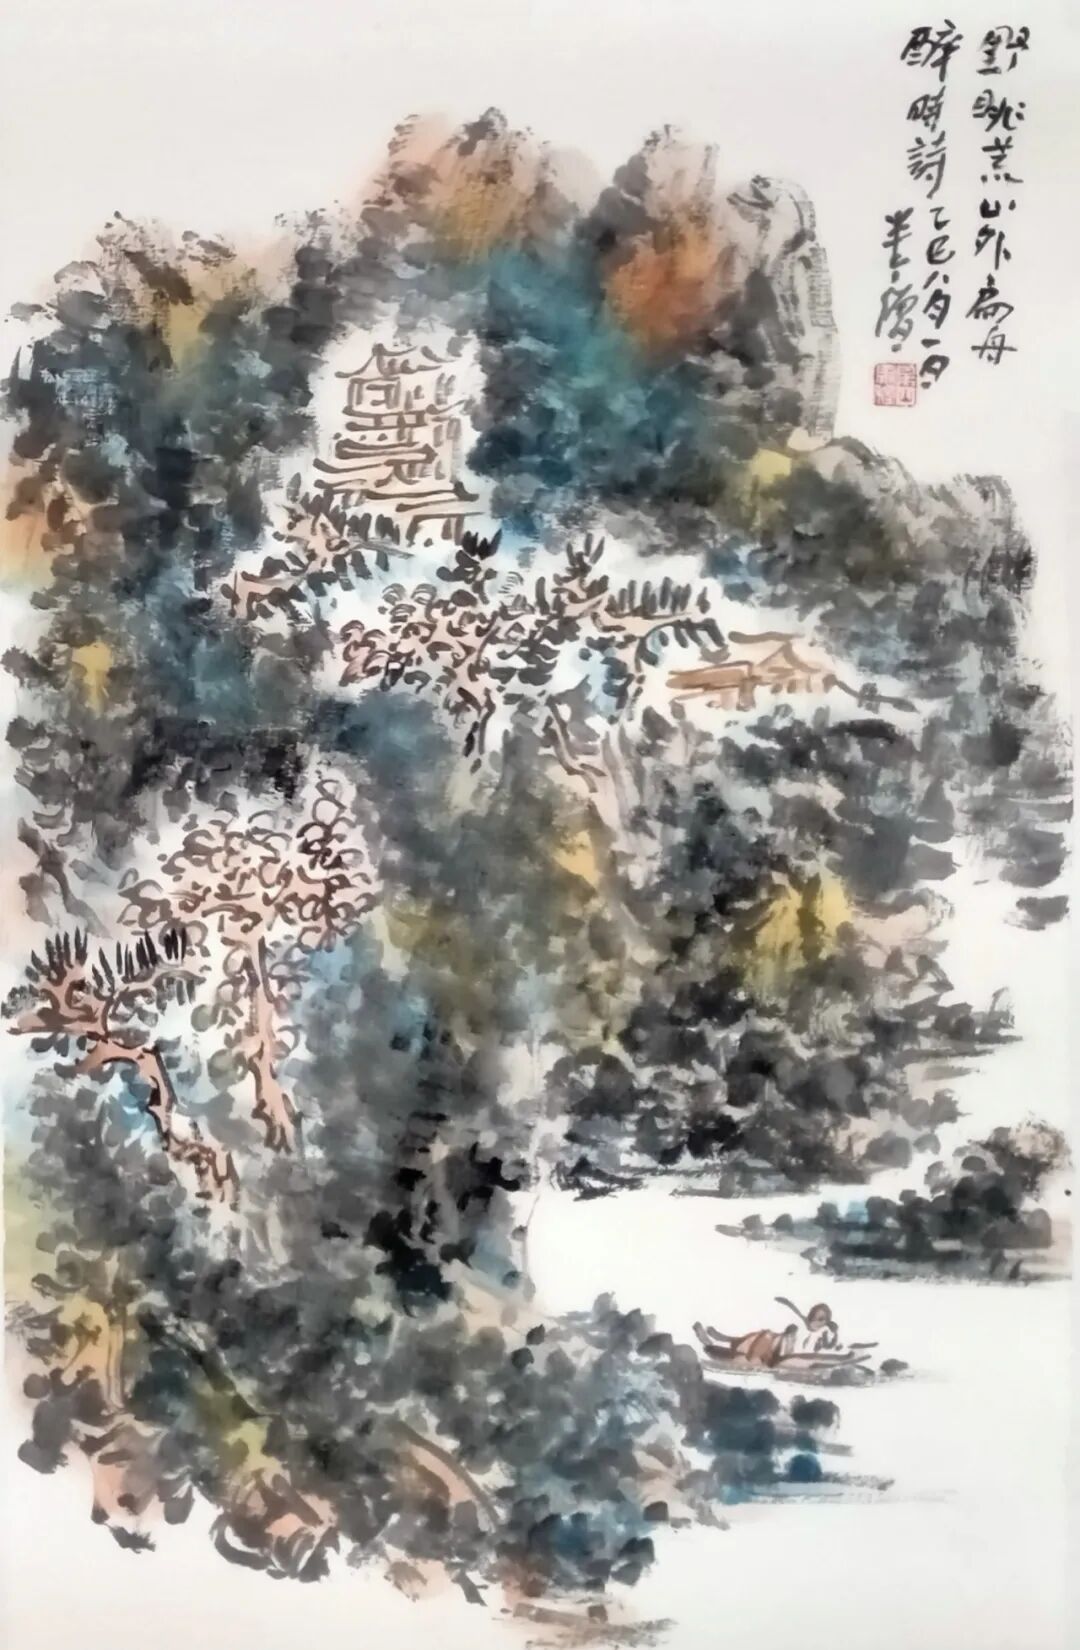 野眺荒山外扁舟
醉時詩乙巳八月一日
半僧